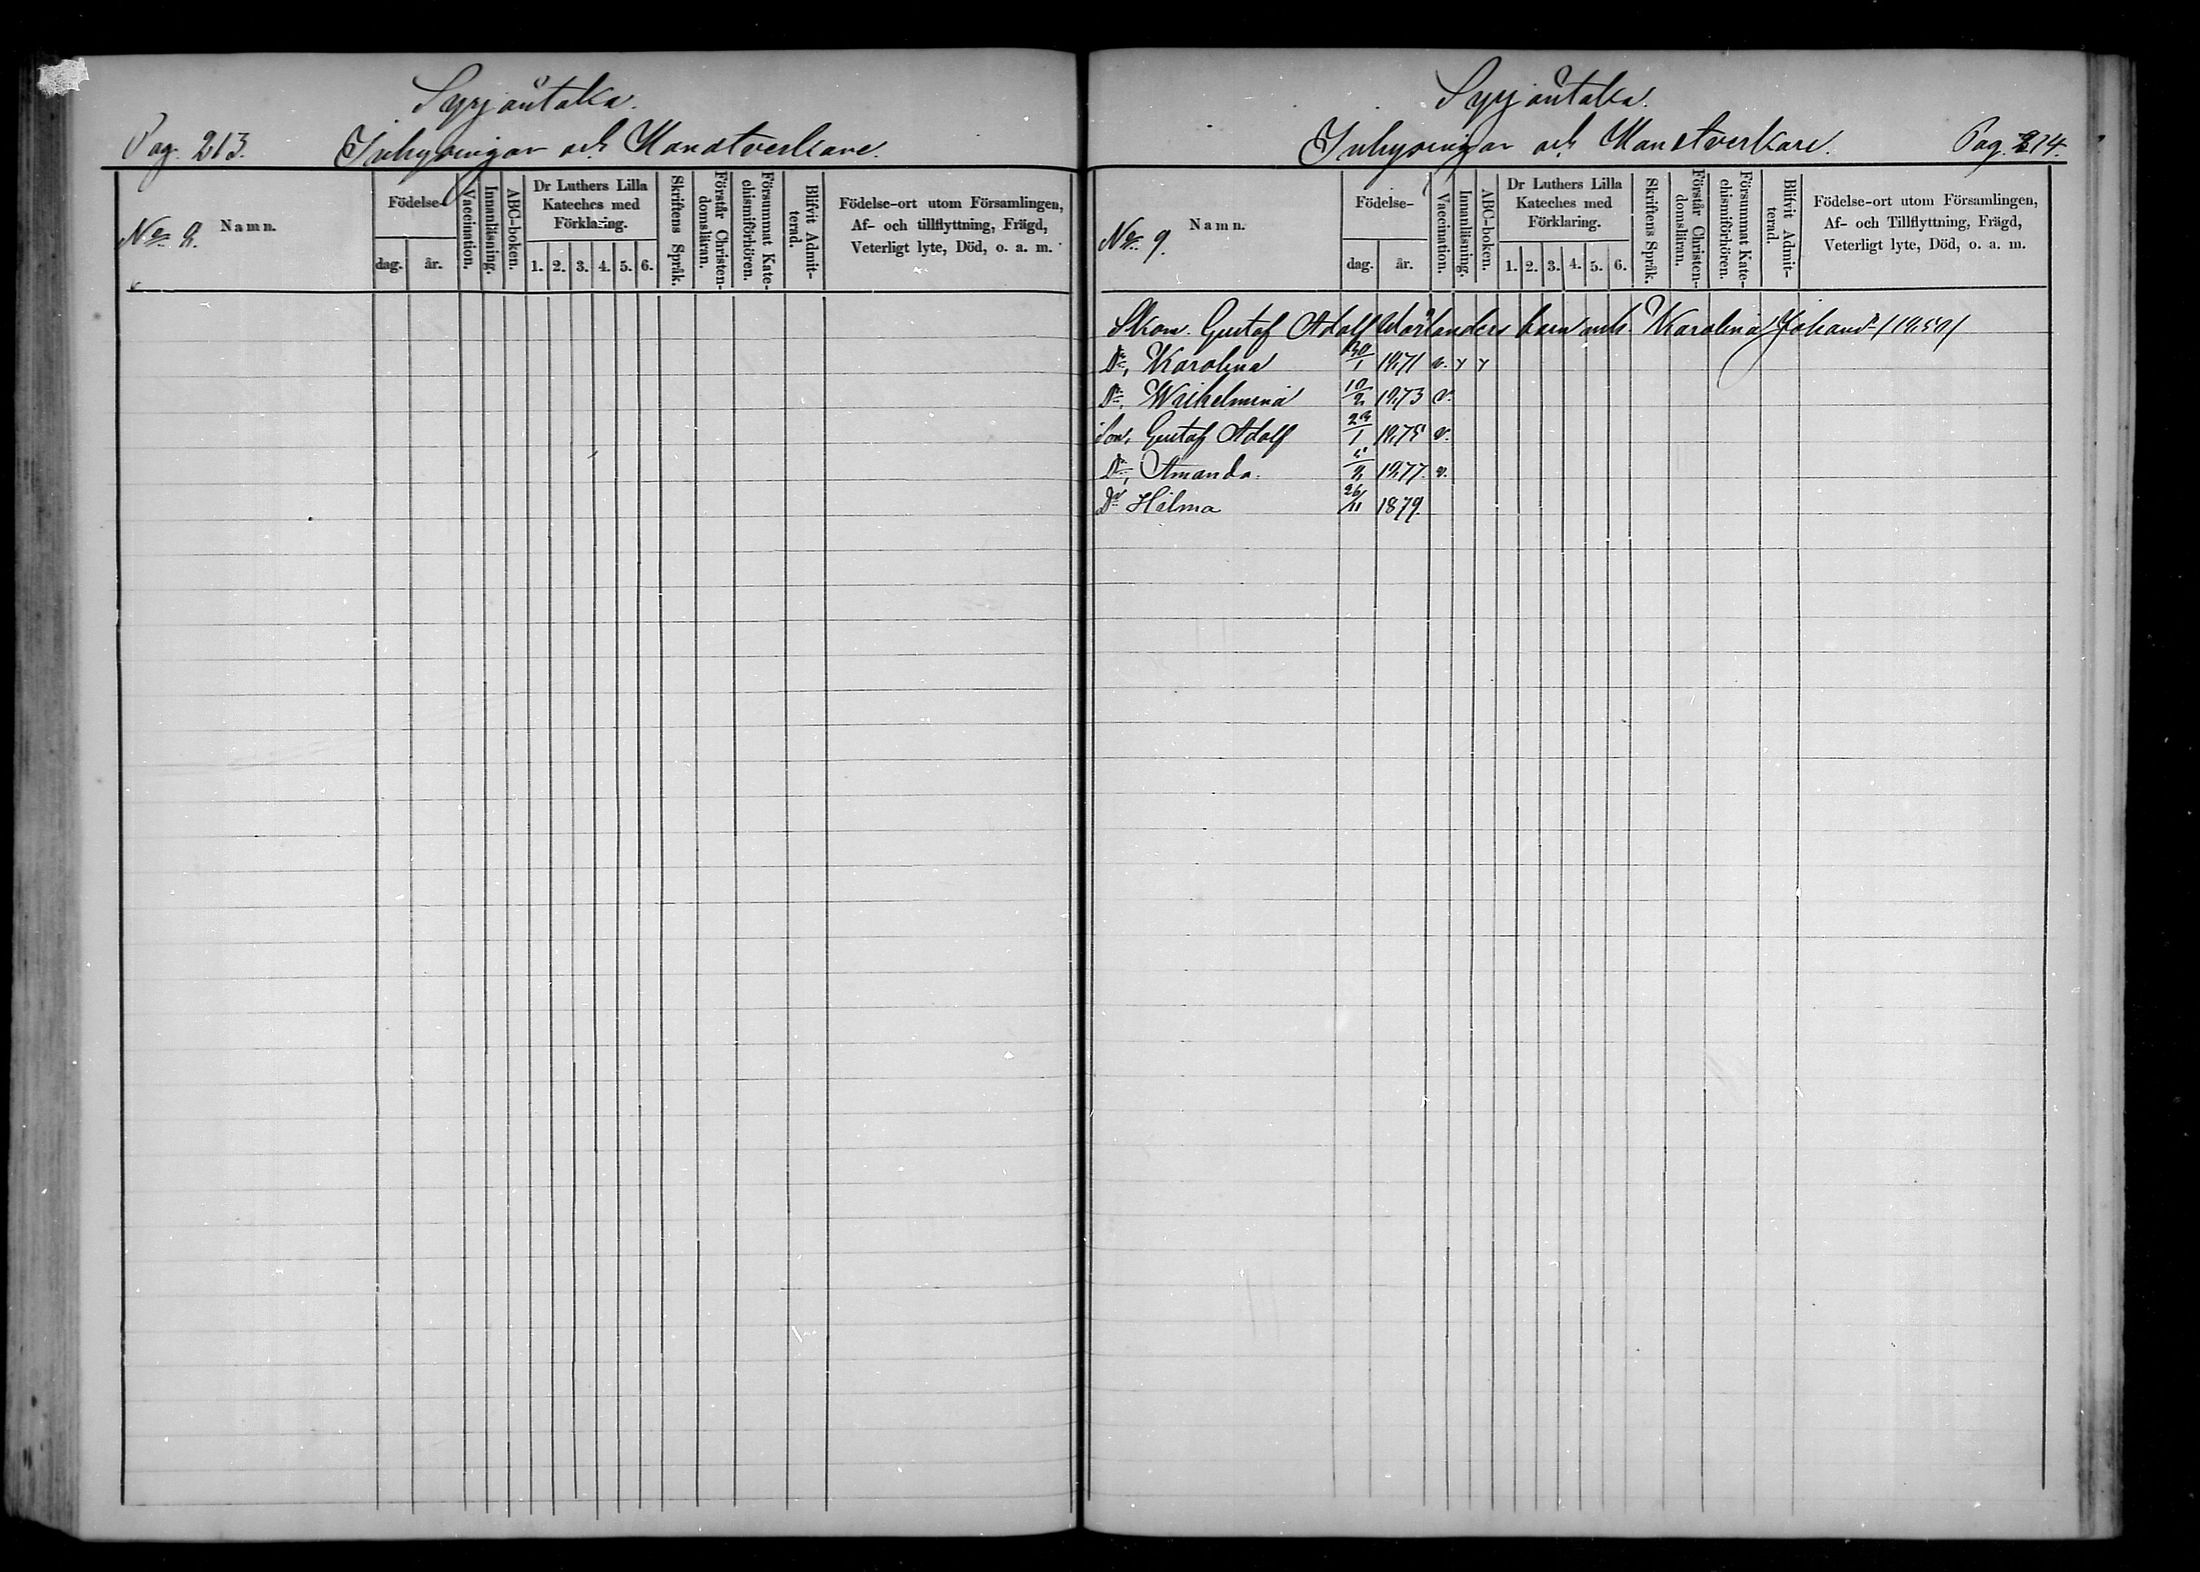 Syrjäntaka.
Pag. 213. Inhysingar och Handtverkare.
No 9. Namn.
Födelse-
dag. år.
Vaccination.
Innanläsning.
ABC-boken.
Dr Luthers Lilla Kateches med Förklaring.
1. 2. 3. 4. 5. 6.
Skriftens Språk.
Förstår Christen-domsläran.
Försummat Kate-chismiförhören.
Blifvit Admit-terad.
Födelse-ort utom Församlingen,
Af- och tillflyttning, Frägd,
Veterligt lyte, Död, o. a. m.
Syrjäntaka.
Inhysingar och Handtverkare. Pag. 214.
No 9. Namn.
Födelse-
dag. år.
Vaccination.
Innanläsning.
ABC-boken.
Dr Luthers Lilla Kateches med Förklaring.
1. 2. 3. 4. 5. 6.
Skriftens Språk.
Förstår Christen-domsläran.
Försummat Kate-chismiförhören.
Blifvit Admit-terad.
Födelse-ort utom Församlingen,
Af- och Tillflyttning, Frägd,
Veterligt lyte, Död, o. a. m.
Skom. Gustaf Adolf barn och Karolina Johansd:r /1850/
Dr, Karolina 30/1 1871 v. γ γ
Dr, Wilhelmina 10/2 1873 v.
Son, Gustaf Adolf 1875 v.
Dr, Amanda. 1877. v.
Dr Hilma 26/11 1879.